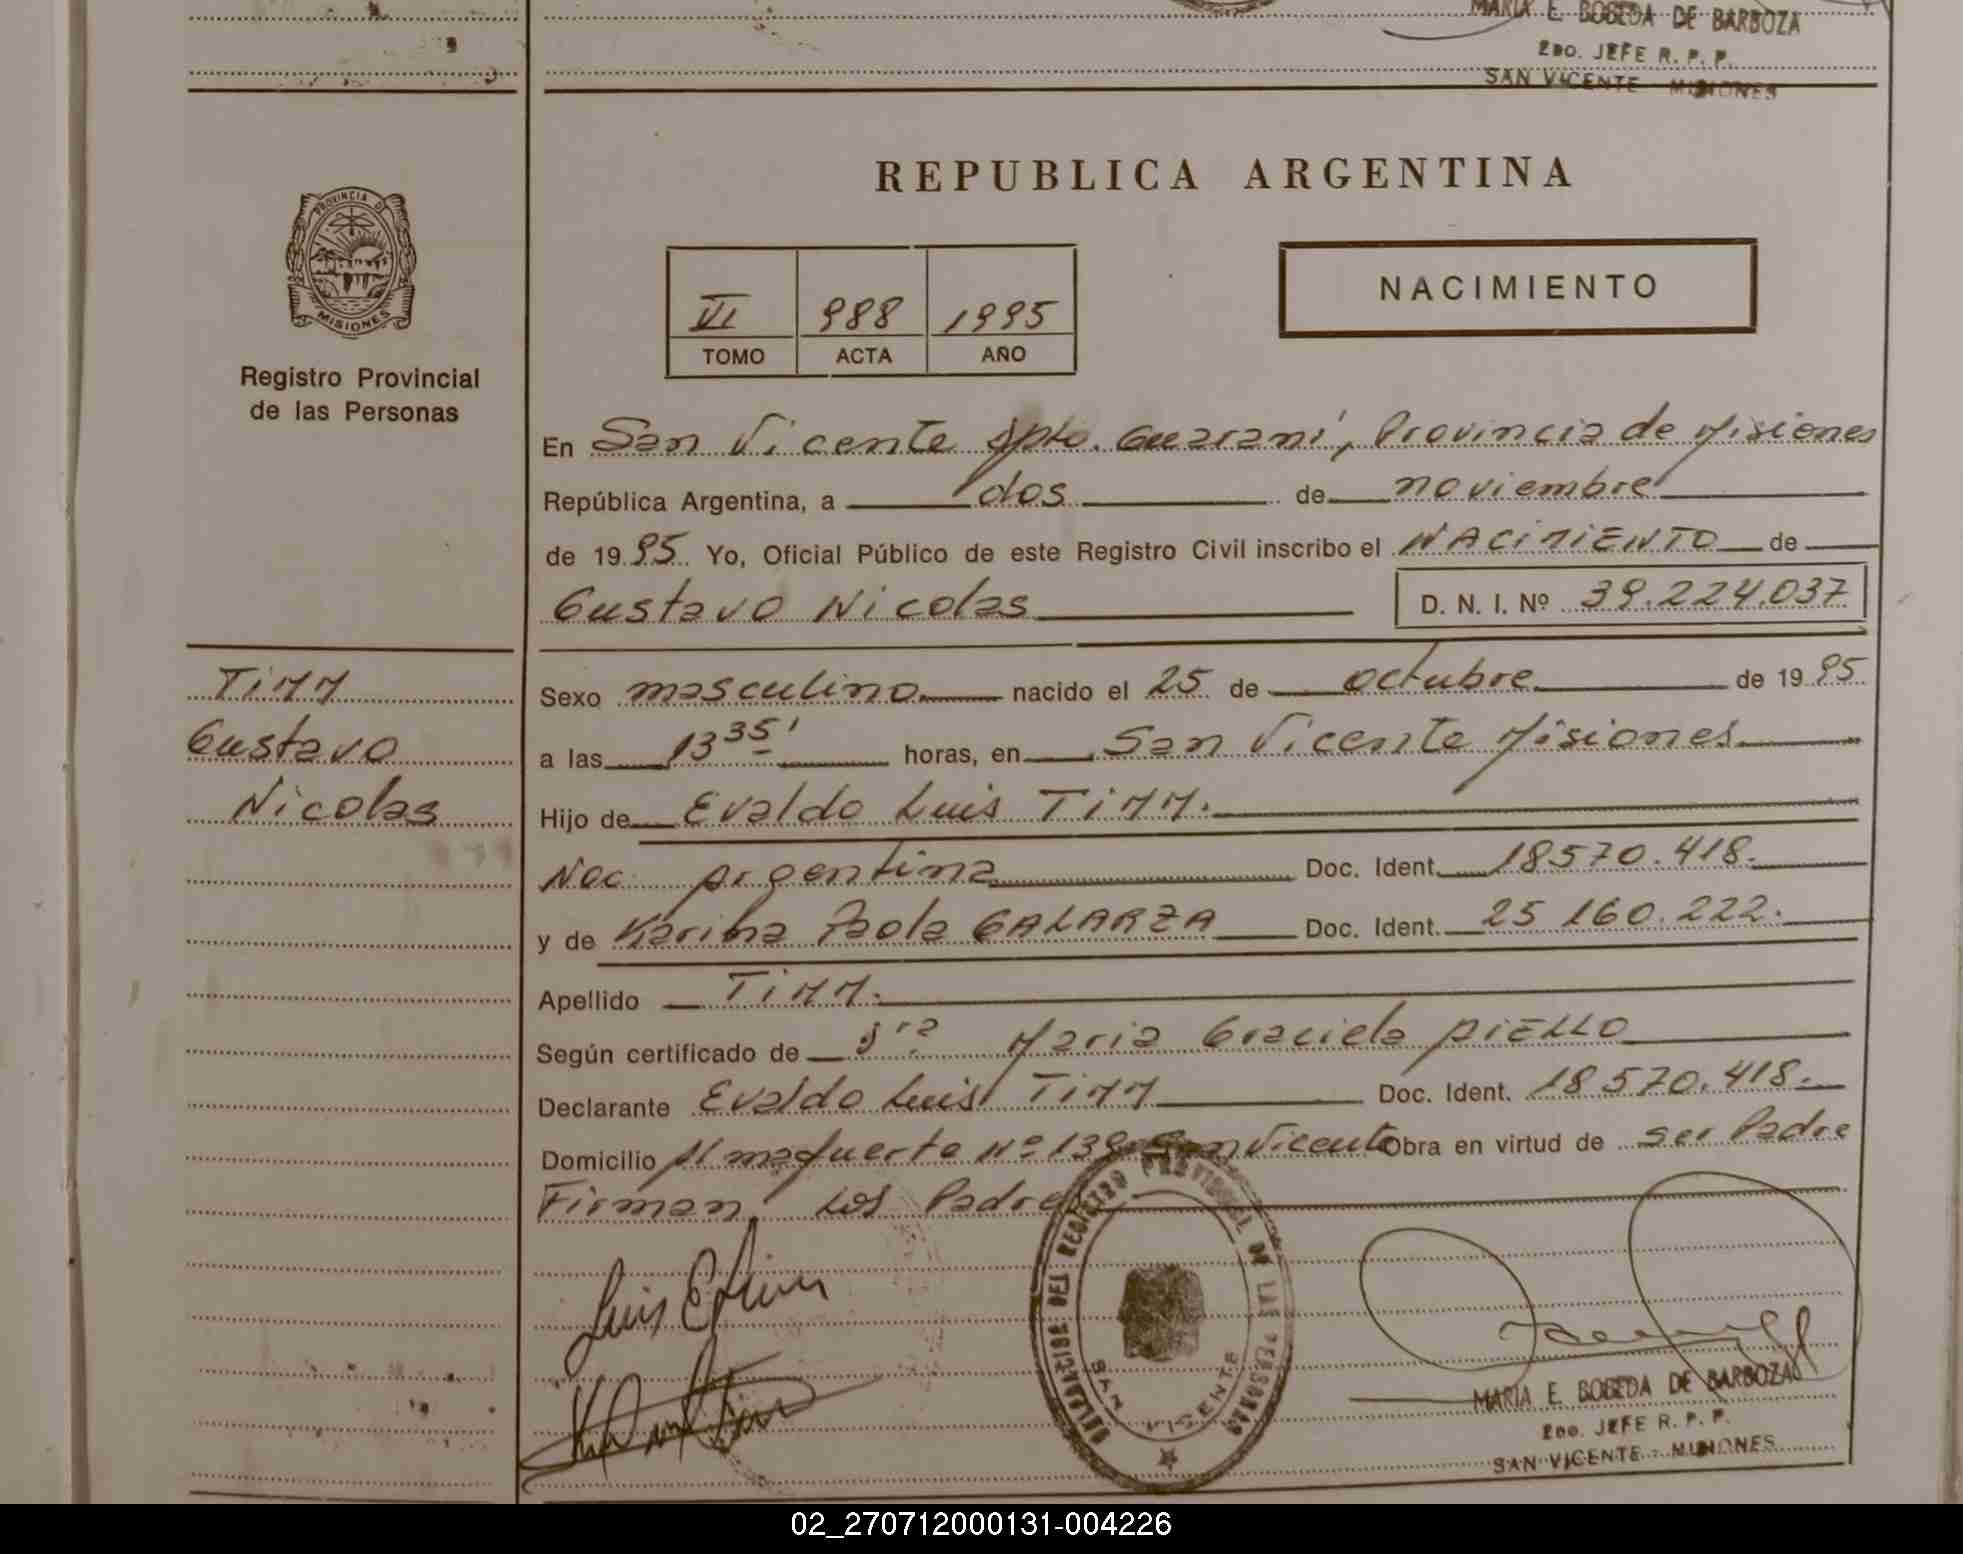 MARIA E. BOBEDA DE BARBOZA
2DO. JEFE R. P. P.
SAN VICENTE MISIONES
REPUBLICA ARGENTINA
PROVINCIA DE
MISIONES
Registro Provincial
de las Personas
VI 988 1995
TOMO ACTA AÑO
NACIMIENTO
En San Vicente Dpto. Guaraní, Provincia de Misiones
República Argentina, a dos de noviembre
de 1995 Yo, Oficial Público de este Registro Civil inscribo el NACIMIENTO de
Gustavo Nicolas D. N. I. Nº 39.224.037
TIMM
Gustavo
Nicolas
Sexo masculino nacido el 25 de octubre de 1995
a las 13 35' horas, en San Vicente Misiones
Hijo de Evaldo Luis TIMM.
Nac. argentina Doc. Ident. 18570.418.
y de Karina Paola GALARZA Doc. Ident. 25 160.222.
Apellido TIMM.
Según certificado de Maria Graciela PIELLO
Declarante Evaldo Luis TIMM Doc. Ident. 18 570.418.
Domicilio Nº San Vicente Obra en virtud de ser Padre
Firman los Padres
DEL REGISTRO PROVINCIAL DE LAS PERSONAS
SAN VICENTE
MARIA E. BOBEDA DE BARBOZA
2DO. JEFE R. P. P.
SAN VICENTE - MISIONES
02_270712000131-004226